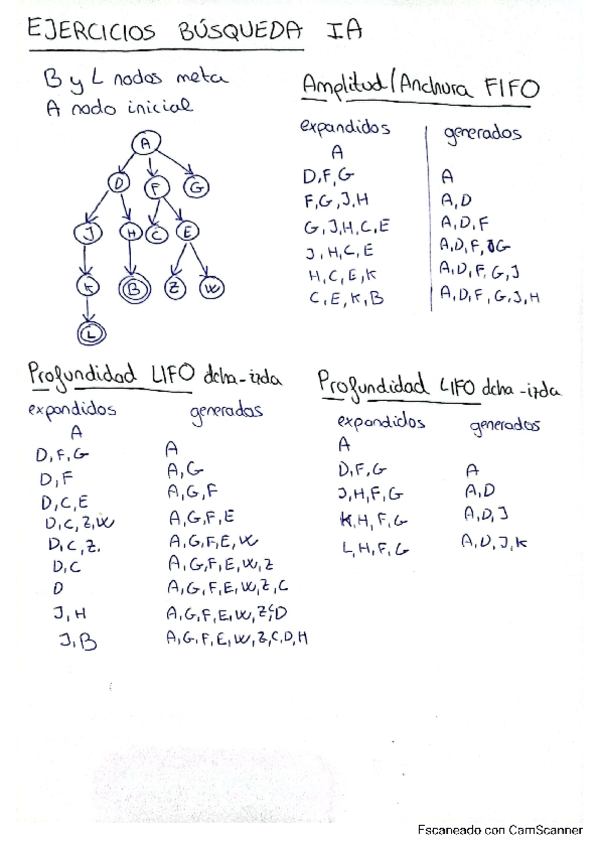 EJERCICIOS BÚSQUEDA IA
B y L nodos meta
A nodo inicial
A
D F G
J H C E
K B Z W
L
Amplitud/Anchura FIFO
expandidos generados
A
D,F,G A
F,G,J,H A,D
G,J,H,C,E A,D,F
J,H,C,E A,D,F,G
H,C,E,K A,D,F,G,J
C,E,K,B A,D,F,G,J,H
Profundidad LIFO dcha-izda
expandidos generados
A
D,F,G A
D,F A,G
D,C,E A,G,F
D,C,Z,W A,G,F,E
D,C,Z. A,G,F,E,W
D,C A,G,F,E,W,Z
D A,G,F,E,W,Z,C
J,H A,G,F,E,W,Z,C,D
J,B A,G,F,E,W,Z,C,D,H
Profundidad LIFO dcha-izda
expandidos generados
A
D,F,G A
J,H,F,G A,D
K,H,F,G A,D,J
L,H,F,G A,D,J,K
Escaneado con CamScanner